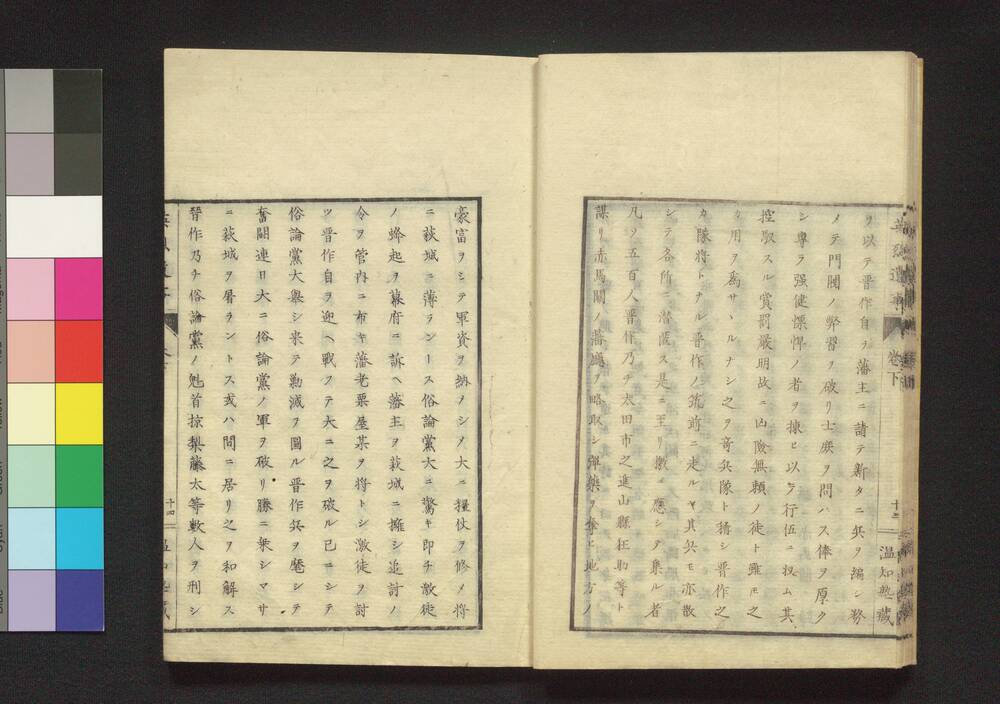 英烈遺事 卷下 十三 温知塾藏
ヲ以テ晉作自ラ藩主ニ請テ新タニ兵ヲ編シ務
メテ門閥ノ弊習ヲ破リ士庶ヲ問ハス俸ヲ厚ク
シ專ラ强健慓悍ノ者ヲ揀ヒ以テ行伍ニ扱ム其
控馭スル賞罰嚴明故ニ凶險無頼ノ徒ト雖モ之
カ用ヲ爲サヽルナシ之ヲ奇兵隊ト稱シ晉作之
カ隊將トナル晉作ノ筑前ニ走ルヤ其兵モ亦散
シテ各所ニ潜匿ス是ニ至リ檄ニ應シテ集ル者
凡ソ五百人晉作乃チ太田市之進山縣狂助等ト
謀リ赤馬關ノ藩廳ヲ略取シ彈藥ヲ奪ヒ地方ノ
豪富ヲシテ軍資ヲ納ノシメ大ニ糧仗ヲ修メ將
ニ萩城ニ薄ラントス俗論黨大ニ驚キ即チ激徒
ノ蜂起ヲ幕府ニ訴ヘ藩主ヲ萩城ニ擁シ追討ノ
令ヲ管内ニ布キ藩老粟屋某ヲ將トシ激徒ヲ討
ツ晉作自ラ迎ヘ戰フテ大ニ之ヲ破ル已ニシテ
俗論黨大擧シ來テ勦滅ヲ圖ル晉作兵ヲ麾シテ
奮鬪連日大ニ俗論黨ノ軍ヲ破リ勝ニ乗シマサ
ニ萩城ヲ屠ラントス或ハ間ニ居リ之ヲ和解ス
晉作乃チ俗論黨ノ魁首掠梨藤太等數人ヲ刑シ
十四